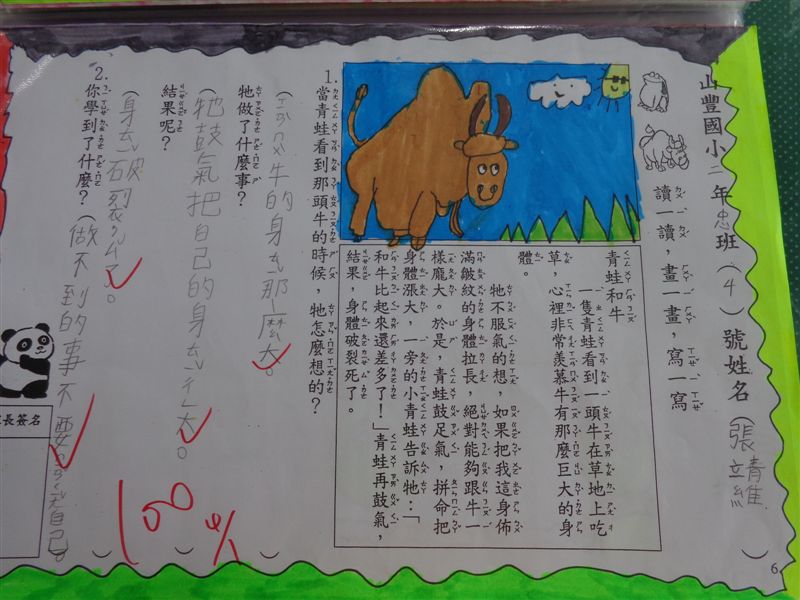 山豐國小二年忠班（4）號姓名（張靖維）
讀一讀，畫一畫，寫一寫
青蛙和牛
一隻青蛙看到一頭牛在草地上吃
草，心裡非常羨慕牛有那麼巨大的身
體。
牠不服氣的想，如果把我這身佈
滿皺紋的身體拉長，絕對能夠跟牛一
樣龐大。於是，青蛙鼓足氣，拼命把
身體漲大，一旁的小青蛙告訴牠：「
和牛比起來還差多了！」青蛙再鼓氣，
結果，身體破裂死了。
1.當青蛙看到那頭牛的時候，牠怎麼想的？
（牛的身ㄊㄧˇ那麼大。）
牠做了什麼事？
（牠鼓氣把自己的身ㄊㄧˇ大。）
結果呢？
（身ㄊㄧˇ破裂ㄙˇ了。）
2.你學到了什麼？（做不到的事不要自己。）
長簽名
100
6